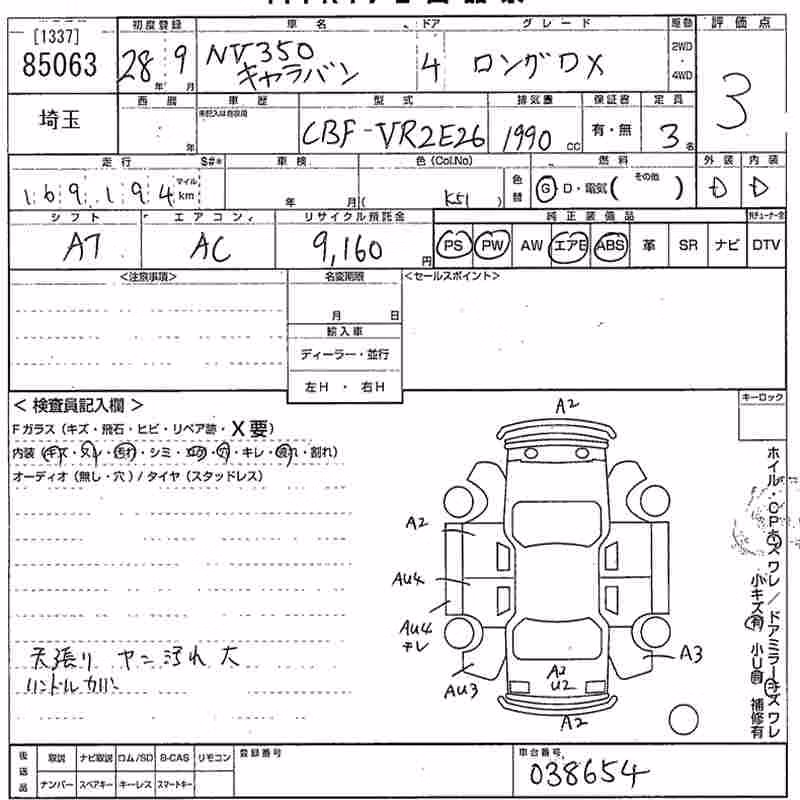 [1337]
85063
初度登録
28年 9月
車名
NV350
キャラバン
ドア
4
グレード
ロングDX
駆動
2WD
・
4WD
評価点
3
埼玉
西暦
年
車歴
未記入は自家用
型式
CBF-VR2E26
排気量
1990 CC
保証書
有・無
定員
3名
走行
169,194
マイル
km
S#*
車検
年 月
色(Col.No)
( K51 )
色替
燃料
G・D・電気( その他 )
外装
D
内装
D
シフト
AT
エアコン
AC
リサイクル預託金
9,160円
純正装備品
PS PW AW エアB ABS 革 SR ナビ DTV
<注意事項>
名変期限
月 日
輸入車
ディーラー・並行
左H ・ 右H
<セールスポイント>
<検査員記入欄>
Fガラス(キズ・飛石・ヒビ・リペア跡・X要)
内装(キズ・スレ・汚れ・シミ・コゲ・穴・キレ・破れ・割れ)
オーディオ(無し・穴)/タイヤ(スタッドレス)
天張り ヤニ汚れ大
ハンドルカバー
キーロック
A2
A2
AU4
AU4
テレ
AU3
A3
A2
U2
A2
ホイル・CPキズワレ/ドアミラーキズワレ
小キズ有 小U有 補修有
後送品
取説 ナビ取説 ロム/SD B-CAS リモコン
ナンバー スペアキー キーレス スマートキー
登録番号
車台番号
038654